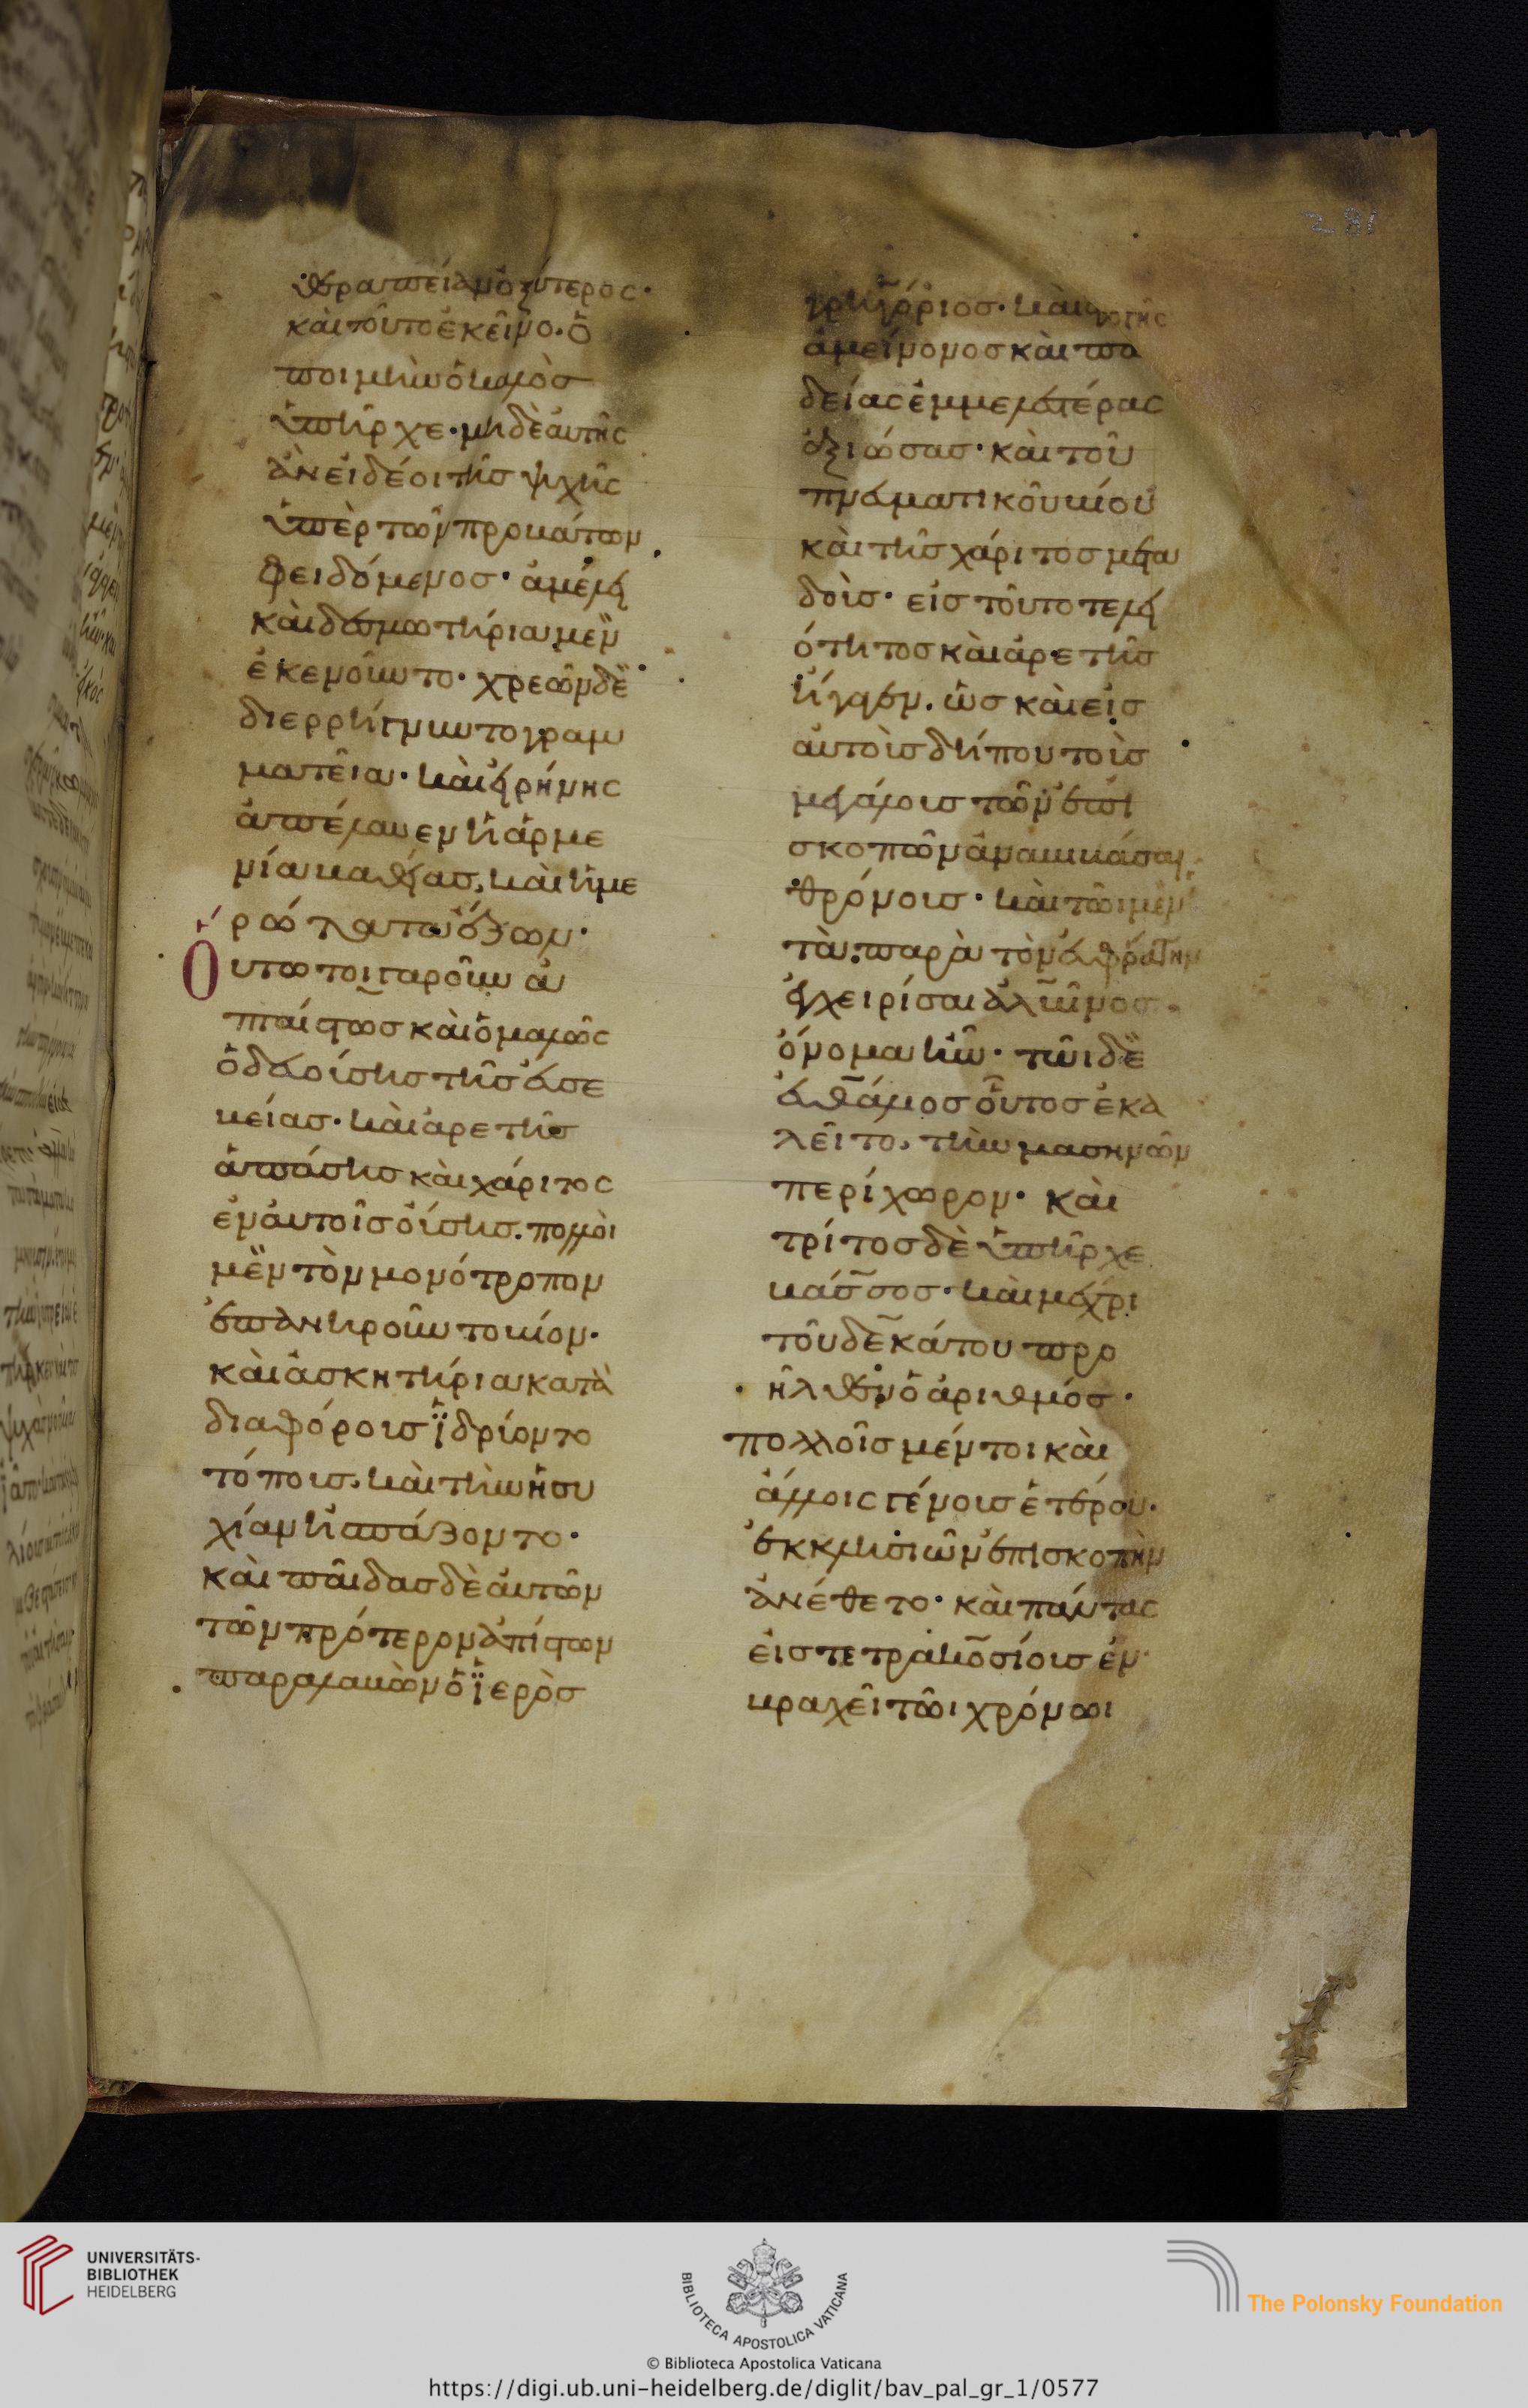 θεραπείαν ὀξύτερος·
καὶ τοῦτο ἐκεῖνο· ὁ
ποιμὴν ὁ καλὸσ
ὑπῆρχε· μηδὲ αὐτῆς
ἂν εἰ δέοι τῆσ ψυχῆς
ὑπὲρ τῶν προβάτων
φειδόμενοσ· ἀμέλει
καὶ δεσμωτήρια μὲν
ἐκενοῦντο· χρεῶν δὲ
διερρήγνυντο γραμ
ματεῖα· καὶ εἰρήνης
ἀπέλαυεν ἡ ἀρμε
νία βαθείασ, καὶ ἡμέ
ρω
Οὕτω τοιγαροῦν ἁ
παίστωσ καὶ ὁμαλῶς
ὁδευούσησ τῆσ εὐσε
βείασ· καὶ ἀρετῆσ
ἁπάσησ καὶ χάριτος
ἐν αὐτοῖσ οὔσησ. πολλοὶ
μὲν τὸν μονότροπον
ἐπανηροῦντο βίον·
καὶ ἀσκητήρια κατὰ
διαφόρουσ ἱδρύοντο
τόπουσ. καὶ τὴν ἡσυ
χίαν ἠσπάζοντο·
καὶ παῖδασ δὲ αὐτῶν
τῶν πρότερον ἀπίστων
παραλαβὼν ὁ ἱερὸσ
γρηγόριοσ· καὶ
ἀμείνονοσ καὶ παι
δείας ἐμμελεστέρας
ἀξιώσασ· καὶ τοῦ
πνευματικοῦ βίου
καὶ τῆσ χάριτοσ μετα
δοὺσ· εἰσ τοῦτο τελει
ότητοσ καὶ ἀρετῆσ
ἤγαγεν. ὡσ καὶ εἰσ
αὐτοὺσ δήπου τοὺσ
μεγάλουσ τῶν ἐπι
σκοπῶν ἀναβιβάσαι
θρόνουσ· καὶ τῶι μὲν
τὰ παρὰ τὸν εὐφράτην
ἐγχειρίσαι ἀλβῖνοσ
ὄνομα ἦν· τῶι δὲ
εὐθάλιοσ οὗτοσ ἐκα
λεῖτο, τὴν βασηνῶν
περίχωρον· καὶ
τρίτοσ δὲ ὑπῆρχε
βάσσοσ· καὶ μέχρι
τοῦ δεκάτου προ
ῆλθεν ὁ ἀριθμόσ·
πολλοῖσ μέντοι καὶ
ἄλλοις γένουσ ἑτέρου·
ἐκκλησιῶν ἐπισκοπὴν
ἀνέθετο· καὶ πάντας
εἰσ τετρακοσίουσ ἐν
βραχεῖ τῶι χρόνωι
281
UNIVERSITÄTS-
BIBLIOTHEK
HEIDELBERG
BIBLIOTECA APOSTOLICA VATICANA
The Polonsky Foundation
© Biblioteca Apostolica Vaticana
https://digi.ub.uni-heidelberg.de/diglit/bav_pal_gr_1/0577